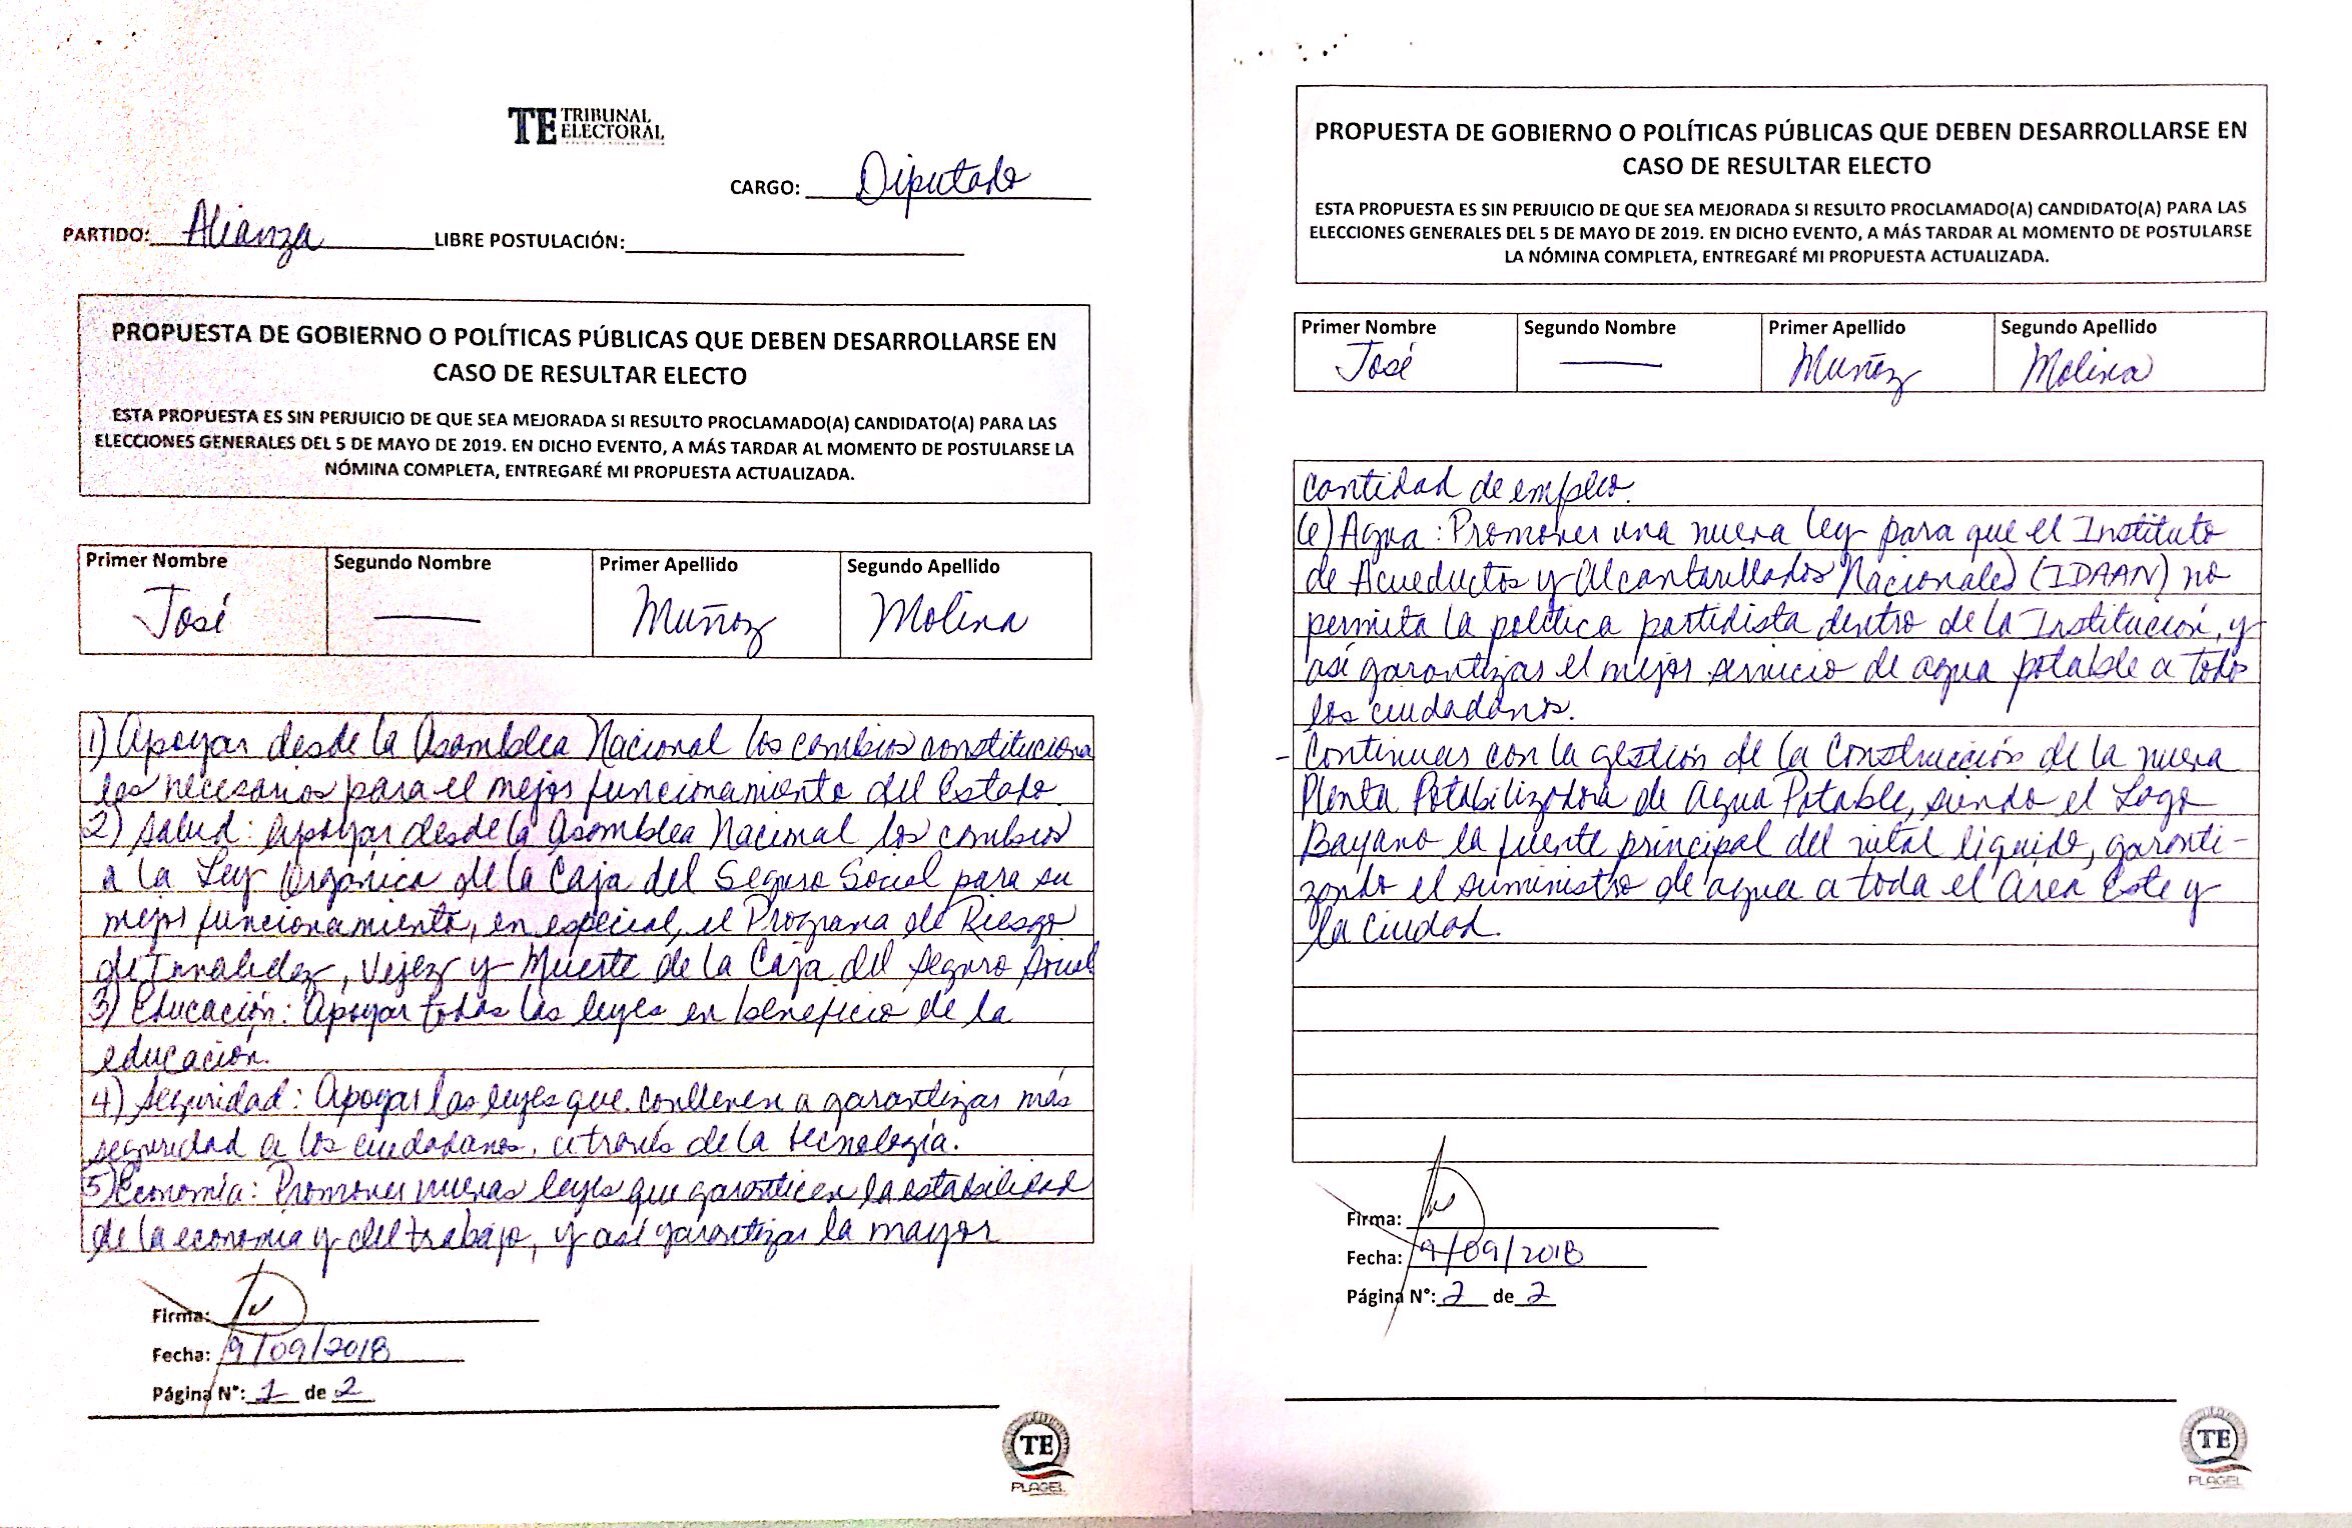 TE TRIBUNAL
ELECTORAL
CARGO: Diputado
PARTIDO: Alianza LIBRE POSTULACIÓN:
PROPUESTA DE GOBIERNO O POLÍTICAS PÚBLICAS QUE DEBEN DESARROLLARSE EN
CASO DE RESULTAR ELECTO
ESTA PROPUESTA ES SIN PERJUICIO DE QUE SEA MEJORADA SI RESULTO PROCLAMADO(A) CANDIDATO(A) PARA LAS
ELECCIONES GENERALES DEL 5 DE MAYO DE 2019. EN DICHO EVENTO, A MÁS TARDAR AL MOMENTO DE POSTULARSE LA
NÓMINA COMPLETA, ENTREGARÉ MI PROPUESTA ACTUALIZADA.
Primer Nombre Segundo Nombre Primer Apellido Segundo Apellido
José — Muñoz Molina
1) Apoyar desde la Asamblea Nacional los cambios constituciona
les necesarios para el mejor funcionamiento del Estado.
2) Salud: Apoyar desde la Asamblea Nacional los cambios
a la Ley Orgánica de la Caja del Seguro Social para su
mejor funcionamiento, en especial, el Programa de Riesgo
de Invalidez, Vejez y Muerte de la Caja del Seguro Social
3) Educación: Apoyar todas las leyes en beneficio de la
educación.
4) Seguridad: Apoyar las leyes que conlleven a garantizar más
seguridad a los ciudadanos, a través de la tecnología.
5) Economía: Promover nuevas leyes que garanticen la estabilidad
de la economía y del trabajo, y así garantizar la mayor
Firma:
Fecha: 19/09/2018
Página N°: 1 de 2
TE
PLAGEL
PROPUESTA DE GOBIERNO O POLÍTICAS PÚBLICAS QUE DEBEN DESARROLLARSE EN
CASO DE RESULTAR ELECTO
ESTA PROPUESTA ES SIN PERJUICIO DE QUE SEA MEJORADA SI RESULTO PROCLAMADO(A) CANDIDATO(A) PARA LAS
ELECCIONES GENERALES DEL 5 DE MAYO DE 2019. EN DICHO EVENTO, A MÁS TARDAR AL MOMENTO DE POSTULARSE
LA NÓMINA COMPLETA, ENTREGARÉ MI PROPUESTA ACTUALIZADA.
Primer Nombre Segundo Nombre Primer Apellido Segundo Apellido
José — Muñoz Molina
cantidad de empleo.
6) Agua: Promover una nueva ley para que el Instituto
de Acueductos y Alcantarillados Nacionales (IDAAN) no
permita la política partidista dentro de la Institución, y
así garantizar el mejor servicio de agua potable a todo
los ciudadanos.
- Continuar con la gestión de la Construcción de la nueva
Planta Potabilizadora de Agua Potable, siendo el Lago
Bayano la fuente principal del vital líquido, garanti-
zando el suministro de agua a toda el Area Este y
la ciudad.
Firma:
Fecha: 19/09/2018
Página N°: 2 de 2
TE
PLAGEL